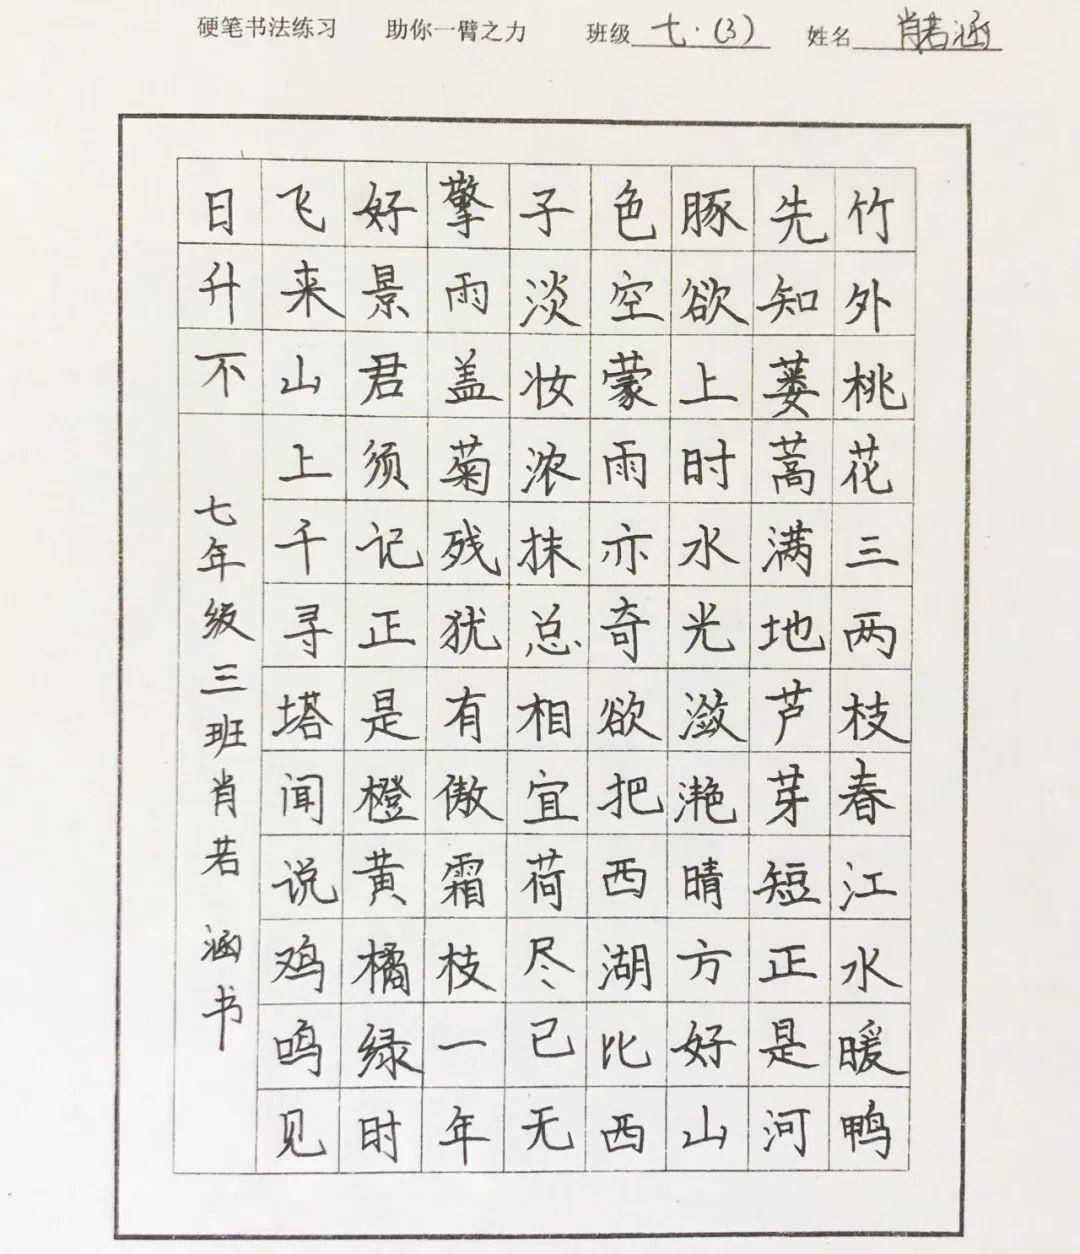 硬笔书法练习 助你一臂之力 班级 七·(3) 姓名 肖若涵
竹外桃花三两枝春江水暖鸭
先知蒌蒿满地芦芽短正是河
豚欲上时水光潋滟晴方好山
色空蒙雨亦奇欲把西湖比西
子淡妆浓抹总相宜荷尽已无
擎雨盖菊残犹有傲霜枝一年
好景君须记正是橙黄橘绿时
飞来山上千寻塔闻说鸡鸣见
日升不
七年级三班肖若涵书